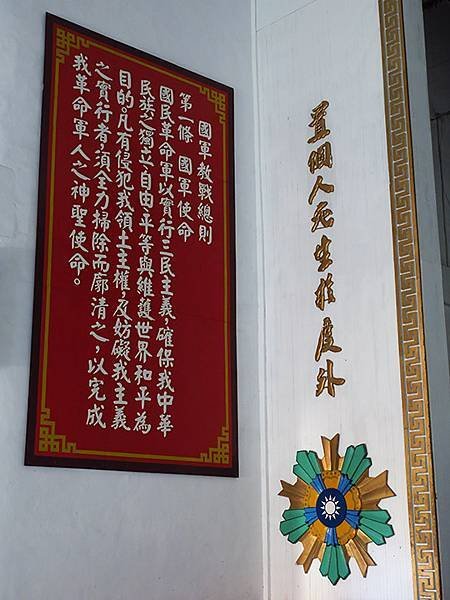 置個人死生於度外
國軍教戰總則
第一條 國軍使命
國民革命軍以實行三民主義，確保我中華
民族之獨立自由平等與維護世界和平為
目的。凡有侵犯我領土主權，及妨礙我主義
之實行者，須全力掃除而廓清之，以完成
我革命軍人之神聖使命。